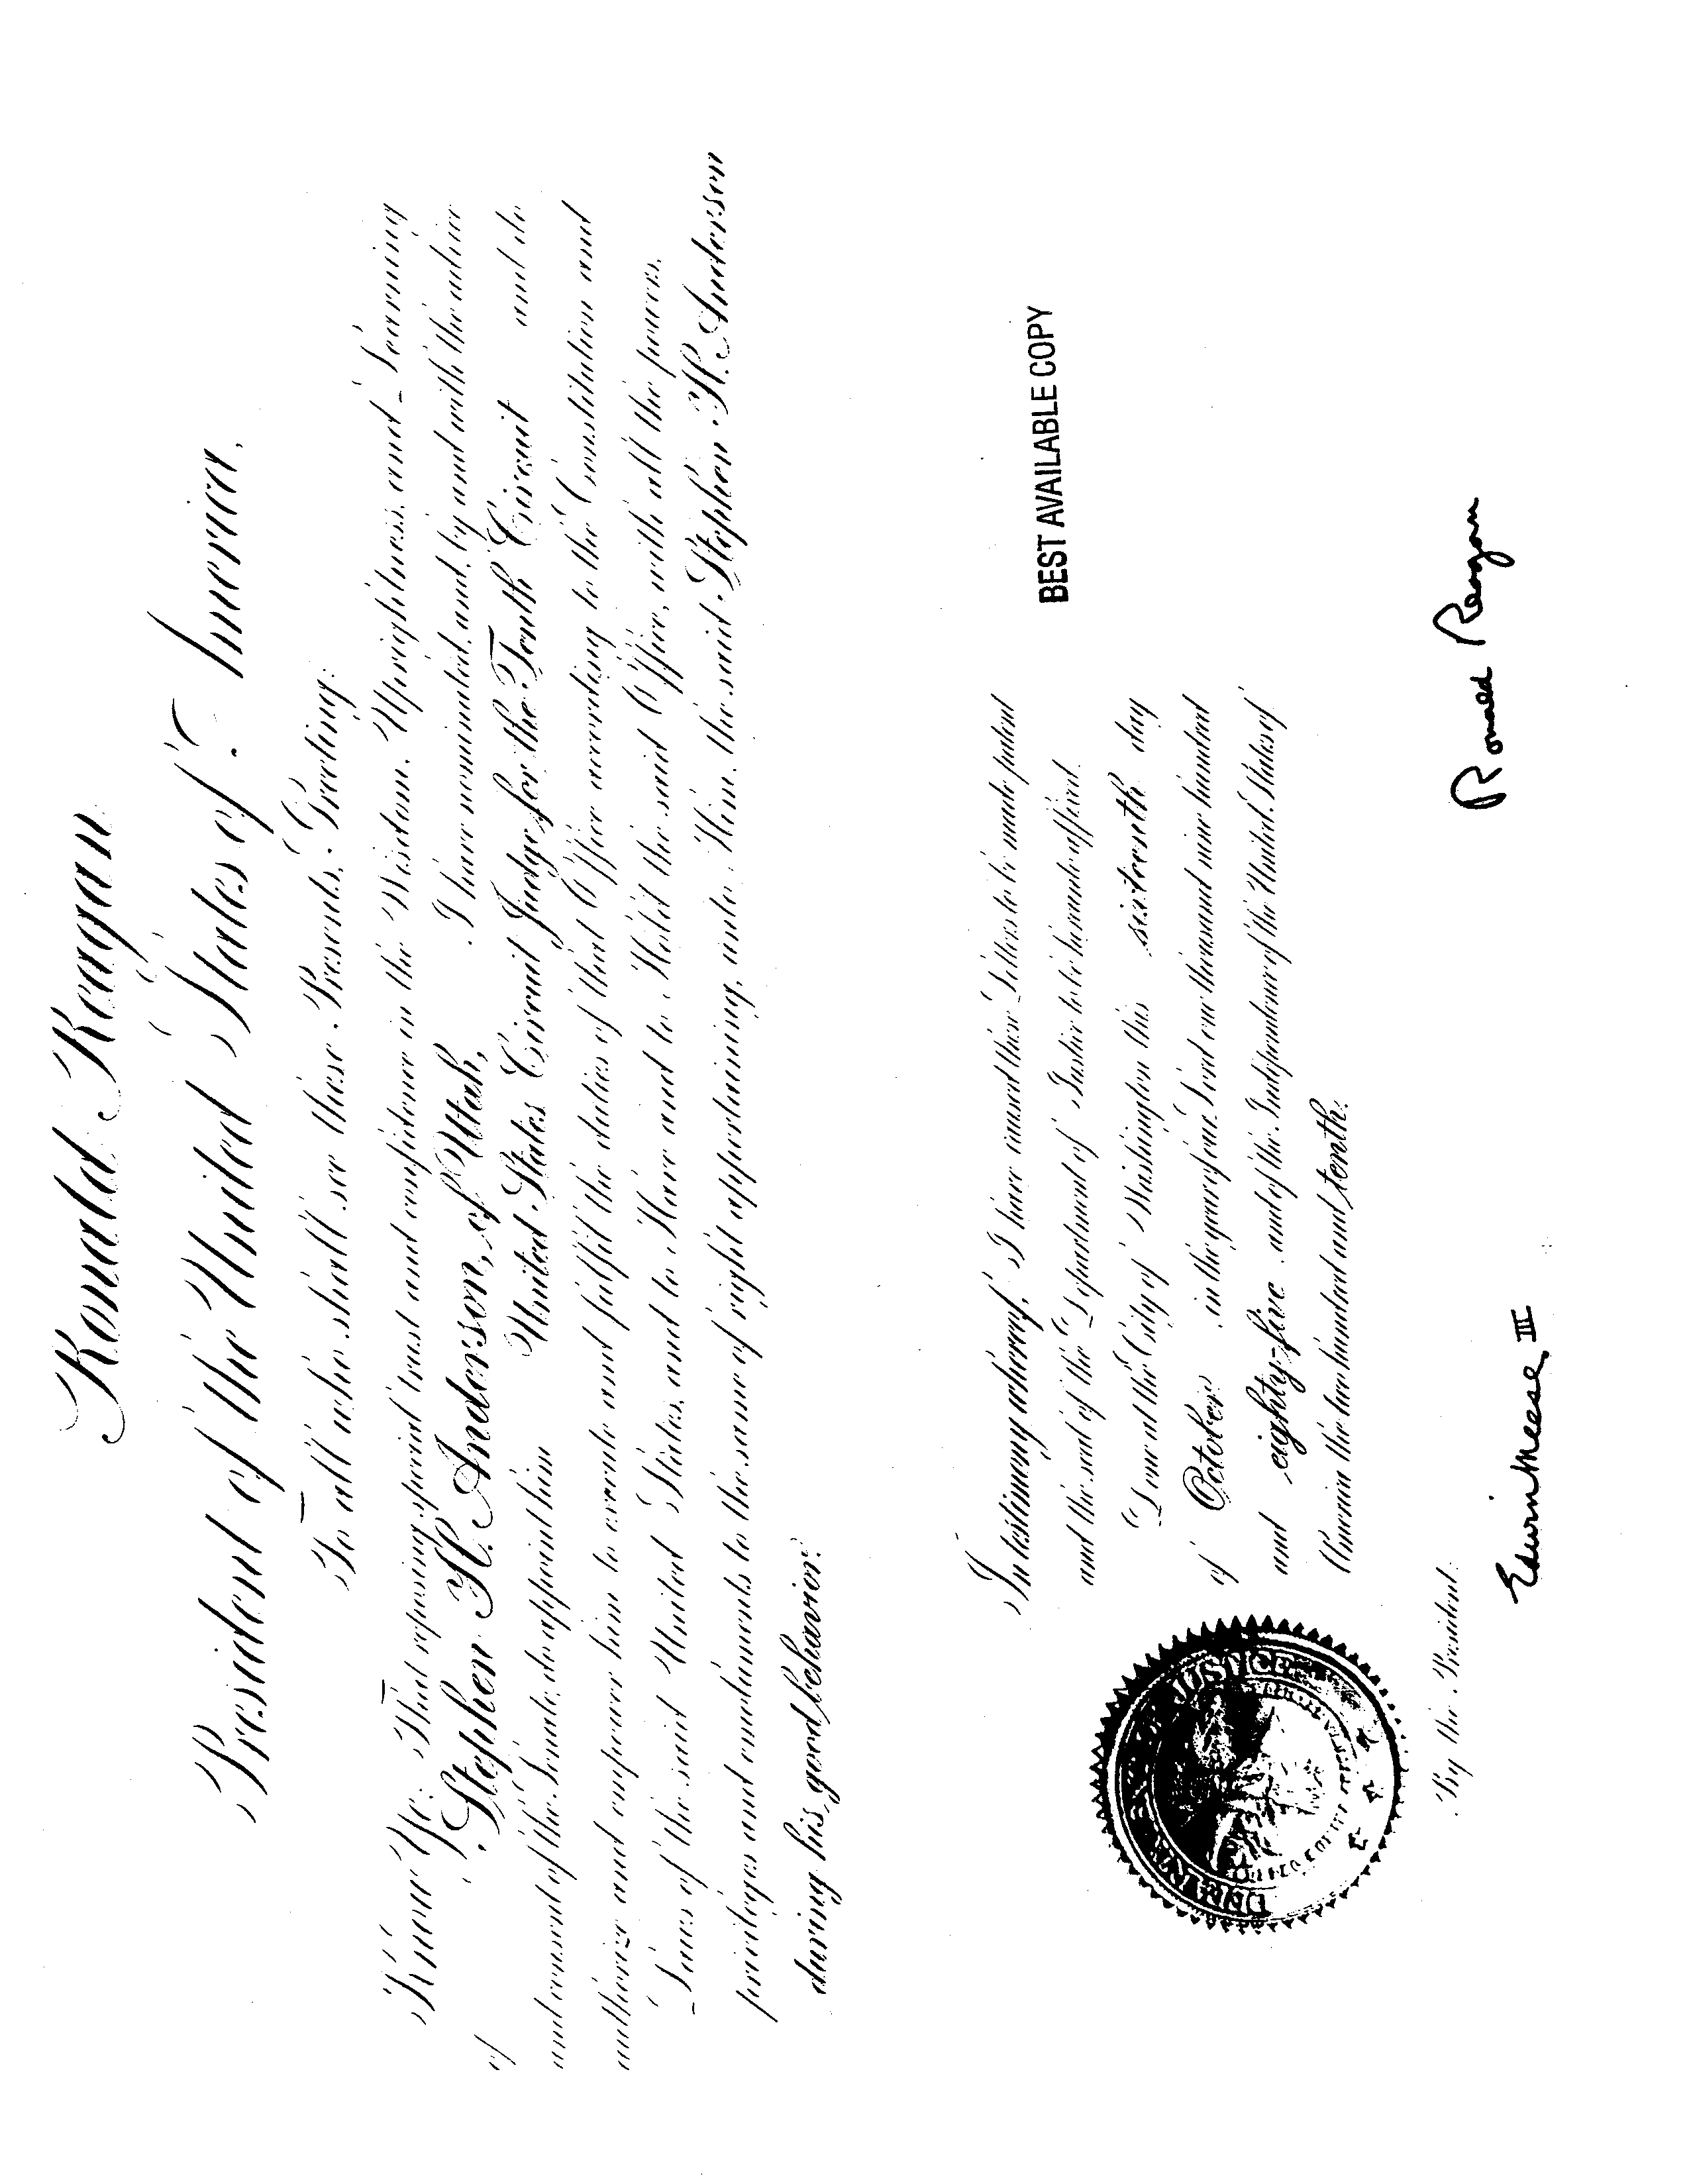 Ronald Reagan
President of the United States of America,
To all who shall see these Presents, Greeting:
Know Ye; That reposing special trust and confidence in the Wisdom, Uprightness, and Learning
of Stephen H. Anderson, of Utah, I have nominated, and, by and with the advice
and consent of the Senate, do appoint him United States Circuit Judge for the Tenth Circuit and do
authorize and empower him to execute and fulfil the duties of that Office according to the Constitution and
Laws of the said United States, and to Have and to Hold the said Office, with all the powers,
privileges and emoluments to the same of right appertaining, unto Him, the said Stephen H. Anderson
during his good behavior.
In testimony whereof, I have caused these Letters to be made patent
and the seal of the Department of Justice to be hereunto affixed.
BEST AVAILABLE COPY
Done at the City of Washington this sixteenth day
of October in the year of our Lord one thousand nine hundred
and eighty-five and of the Independence of the United States of
America the two hundred and tenth.
By the President:
Ronald Reagan
Edwin Meese III